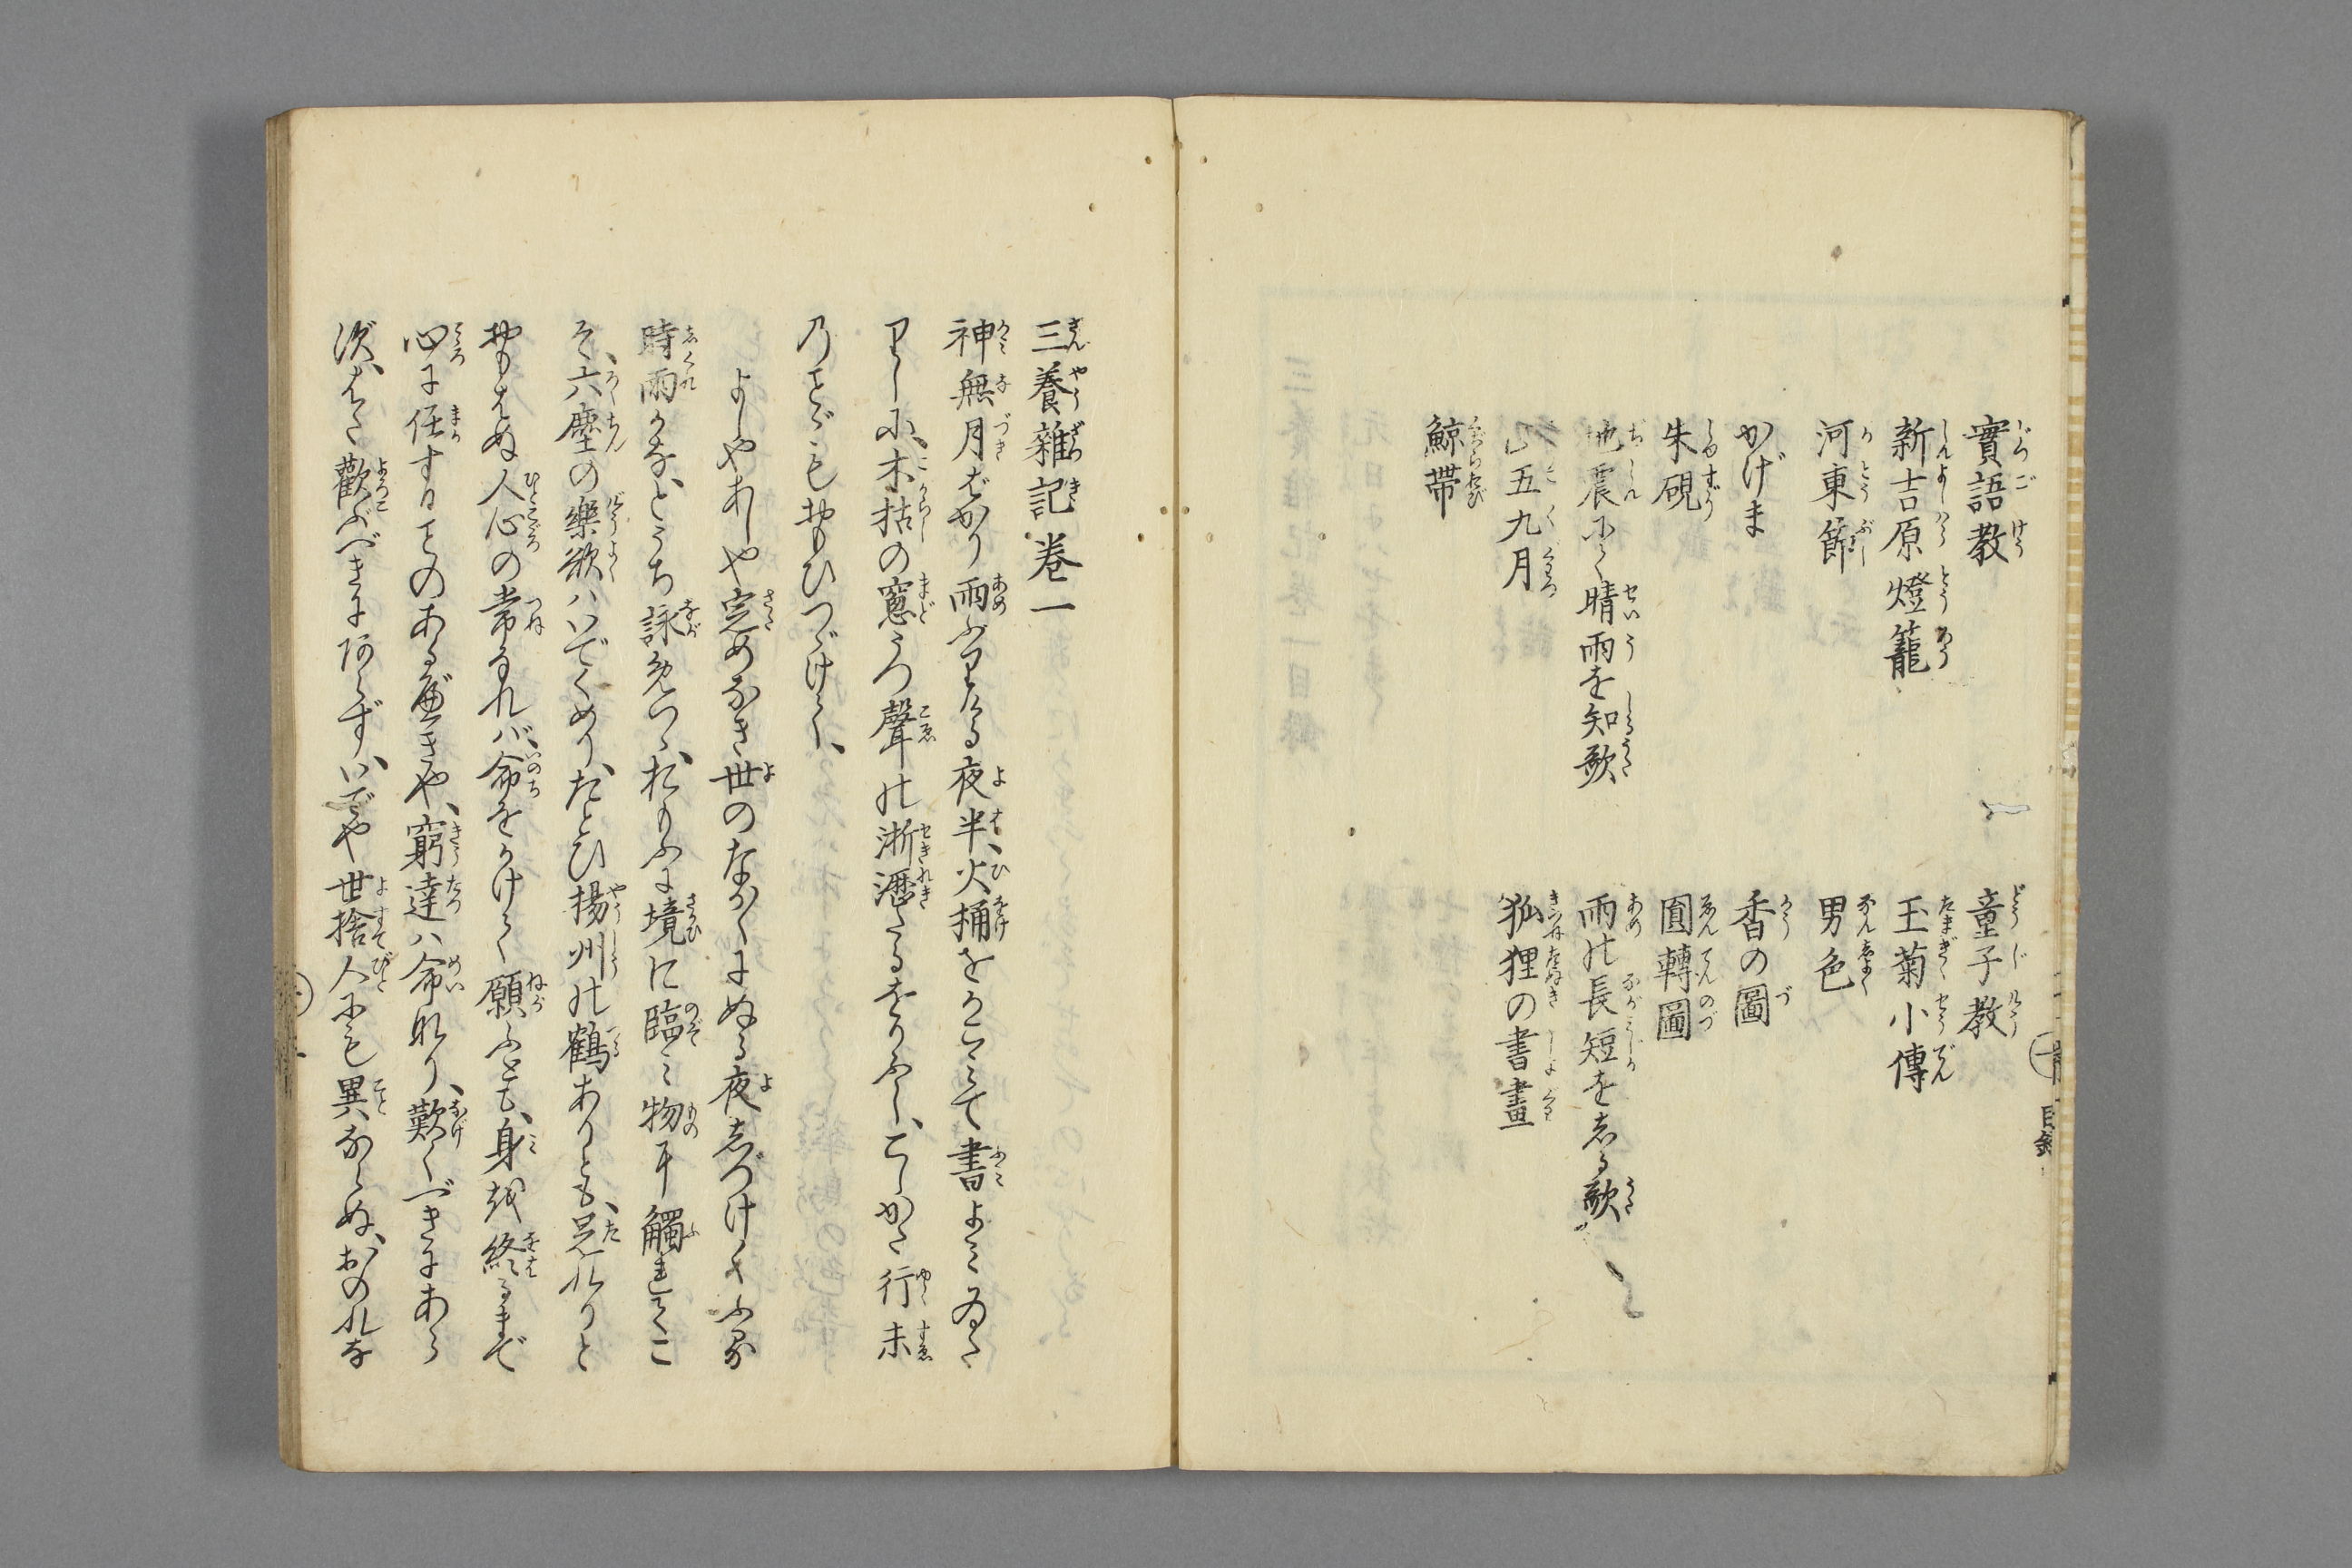 實語教
童子教
新吉原燈籠
玉菊小傳
河東節
男色
かげま
香の圖
朱硯
圓轉圖
地震にて晴雨を知歌
雨の長短をしる歌
正五九月
狐狸の書畫
鯨帶
目録
三養雜記卷一
神無月ばかり雨ふりける夜半、火桶をかこみて書よみゐた
りしに、木枯の窓うつ聲の淅瀝たるをりふし、こしかた行末
のことゞもおもひつゞけて、
よしやあしや定めなき世のながらにぬる夜しづけくふる
時雨かな、とうち詠めつゝ、おもふに境に臨み物に觸てこ
そ、六塵の樂欲はいでくめり、たとひ揚州の鶴ありとも、足れりと
おもはぬ人心の常なれば、命をかけて願ふとも、身を終るまで
心に任することのあるべきや、窮達は命なり、歎くべきにあら
ず、はた歡ぶべきにあらず、いでや世捨人にも異ならぬ、おのれな